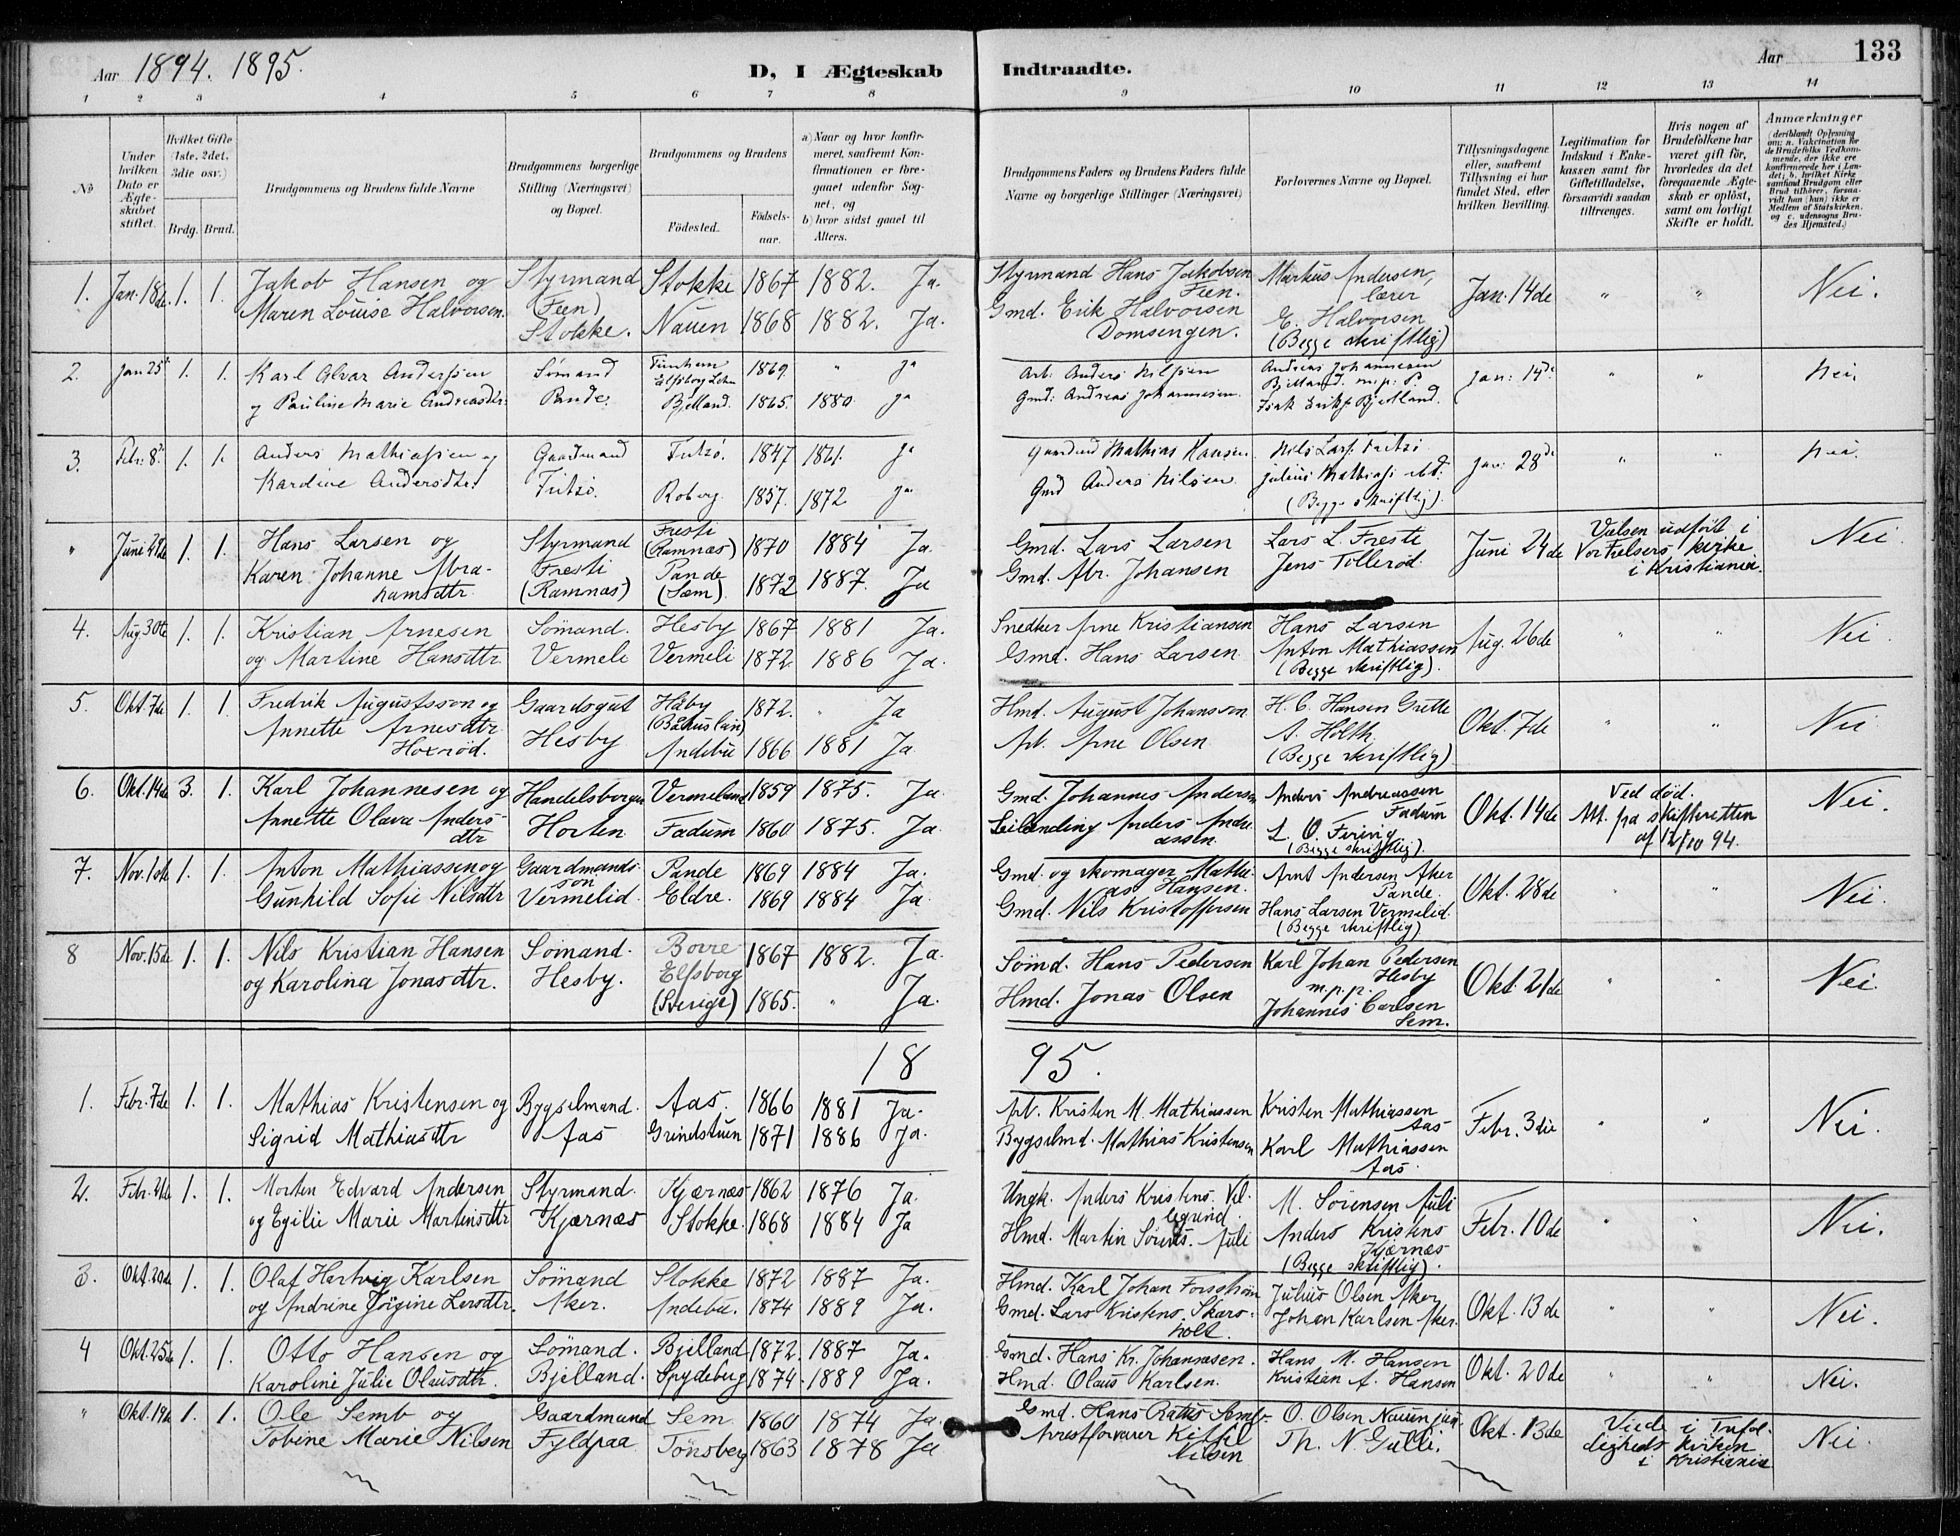 Aar 1894. 1895.
D, I Ægteskab Indtraadte.
Aar 133
1 2 3 4 5 6 7 8 9 10 11 12 13 14
No
Under hvilken Dato er Ægteskabet stiftet.
Hvilket Gifte (1ste, 2det, 3die osv.)
Brdg. Brud.
Brudgommens og Brudens fulde Navne
Brudgommens borgerlige Stilling (Næringsvei) og Bopæl.
Brudgommens og Brudens
Fødested.
Fødselsaar.
a) Naar og hvor konfirmeret, saafremt Konfirmationen er foregaaet udenfor Sognet, og
b) hvor sidst gaaet til Alters.
Brudgommens Faders og Brudens Faders fulde Navne og borgerlige Stillinger (Næringsvei)
Forlovernes Navne og Bopæl.
Tillysningsdagene eller, saafremt Tillysning ei har fundet Sted, efter hvilken Bevilling.
Legitimation for Indskud i Enkekassen samt for Giftetilladelse, forsaavidt saadan tiltrænges.
Hvis nogen af Brudefolkene har været gift før, hvorledes da det foregaaende Ægteskab er opløst, samt om lovligt Skifte er holdt.
Anmærkninger
(deriblandt Oplysning om: a. Vakcination for de Brudefolks Vedkommende, der ikke ere konfirmerede her i Landet; b. hvilket Kirkesamfund Brudgom eller Brud tilhører, forsaavidt han (hun) ikke er Medlem af Statskirken, og c. udensogns Brudes Hjemsted.)
1. Jan. 18de 1. 1. Jakob Hansen og Styrmand Stokke 1867 1882. Ja. Styrmand Hans Jakobsen Feen. Markus Andersen, lærer Jan. 14de " " Nei.
Maren Louise Halvorsen. Feen) Stokke. Nauen 1868 1882. Ja. Gmd. Erik Halvorsen Domsengen. E. Halvorsen (Begge skriftlig)
2. Jan 25 1. 1. Karl Alvar Andersen Sømand Elfsborg Lehn 1869. " ja Arb. Anders Nilsen Andreas Johannesen Bjelland m.p. Jan: 14de " " Nei.
og Pauline Marie Andreasdtr. Pande. Bjelland. 1865. 1880. ja Gmd: Andreas Johannesen. Isak Eriks. Bjelland.
3. Febr: 8de 1. 1. Anders Mathiassen og Gaardmand Fritsø. 1847 1861. ja Gaardmd Mathias Hansen. Nils Lars. Fritsø Jan: 28de " " Nei.
Kardine Andersdtr. Fritsø. Roberg. 1857. 1872 ja Gmd Anders Nilsen. Julius Mathiass. ibd. (Begge skriftlig).
" Juni 28de 1. 1. Hans Larsen og Styrmand Fresti (Ramnæs) 1870 1884 Ja. Gmd. Lars Larsen Lars L. Freste Juni 24de Vielsen udført i Vor Frelsers kirke i Kristiania. Nei.
Karen Johanne Abrahamsdtr. Fresti (Ramnæs) Pande (Sem). 1872 1887. Ja Gmd. Abr. Johansen Jens Tollerød.
4. Aug 30te 1. 1. Kristian Arnesen Sømand. Hesby 1867 1881 Ja. Snedker Arne Kristiansen Hans Larsen Aug. 26de " " Nei.
og Martine Hansdtr. Vermeli Vermeli 1872 1886 Ja. Gmd. Hans Larsen. Anton Mathiassen (Begge skriftlig).
5. Okt. 7de 1. 1. Fredrik Augustsson og Gaardsgut Håby (Båhuslän) 1872. " Ja Hmd. August Johansson H. C. Hansen Grette Okt. 7de " " Nei
Annette Arnesdtr. Hoxrød. Hesby Andebu 1866 1881 Ja Arb. Arne Olsen. A. Holth. (Begge skriftlig).
6. Okt. 14de 3. 1. Karl Johannesen og Handelsborger Vermeland 1859 1875. Ja. Gmd. Johannes Andersen Anders Andreassen Fadum Okt. 14de Ved død. Att. fra skifteretten af 12/10 94. Nei.
Annette Olava Andersdtr Horten Fadum 1860 1875. Ja. Leilænding Anders Andreassen. L. O. Firing (Begge skriftlig).
7. Nov. 1ste 1. 1. Anton Mathiassen og Gaardmandsson Pande 1869 1884 Ja. Gmd. og skomager Mathias Hansen. Arnt Andersen Aker Pande. Okt. 28de " " Nei.
Gunhild Sofie Nilsdtr Vermelid Eldre. 1869 1884 Ja. Gmd. Nils Kristoffersen Hans Larsen Vermelid. (Begge skriftlig)
8 Nov. 15de 1. 1. Nils Kristian Hansen Sømand. Borre 1867 1882. Ja. Sømd. Hans Pedersen Karl Johan Pedersen Hesby m.p.p. Okt. 21de " " Nei.
og Karolina Jonasdtr. Hesby. Elfsborg (Sverige) 1865. " Ja. Hmd. Jonas Olsen Johannes Carlsen Sem.
18 95.
1. Febr. 7de 1. 1. Mathias Kristensen og Bygselmand. Aas. 1866 1881 Ja. Arb. Kristen M. Mathiassen Kristen Mathiassen Aas Febr. 3die " " Nei.
Sigrid Mathiasdtr Aas Grindstuen 1871 1886 Ja. Bygselmd. Mathias Kristensen Karl Mathiassen Aas.
2. Febr. 21de 1. 1. Morten Edvard Andersen Styrmand. Kjærnæs 1862 1876 Ja. Ungk. Anders Kristens. Velegrind M. Sørensen Auli Febr. 10de " " Nei.
og Egilie Marie Martinsdtr Kjærnæs Stokke. 1868 1884 Ja Hmd. Martin Sørens. Auli Anders Kristens Kjærnæs (Begge skriftlig).
3. Okt. 20de 1. 1. Olaf Hartvig Karlsen Sømand Stokke 1872 1887 Ja. Hmd. Karl Johan Forsstrøm Julius Olsen Aker Okt. 13de " " Nei.
og Andrine Jørgine Larsdtr. Aker. Andebu. 1874 1889 Ja. Gmd. Lars Kristens. Skarsholt. Johan Karlsen Aker.
4 Okt. 25de 1. 1. Otto Hansen og Sømand. Bjelland 1872. 1887 Ja. Gmd. Hans Kr. Johannesen. Hans M. Hansen Okt. 20de " " Nei.
Karoline Julie Olausdtr. Bjelland. Spydeberg 1874. 1889 Ja. Hmd. Olaus Karlsen. Kristian A. Hansen
" Okt. 19de 1. 1. Ole Semb og Gaardmand Sem 1860 1874 Ja. Gmd. Hans Semb. O. Olsen Nauen jun. Okt. 13de Viede i Trefoldigheds kirken i Kristiania Nei.
Tobine Marie Nilsen Fyldpaa Tønsberg 1863 1878 Ja Arrestforvarer Kittil Nilsen Th. N. Gulli.